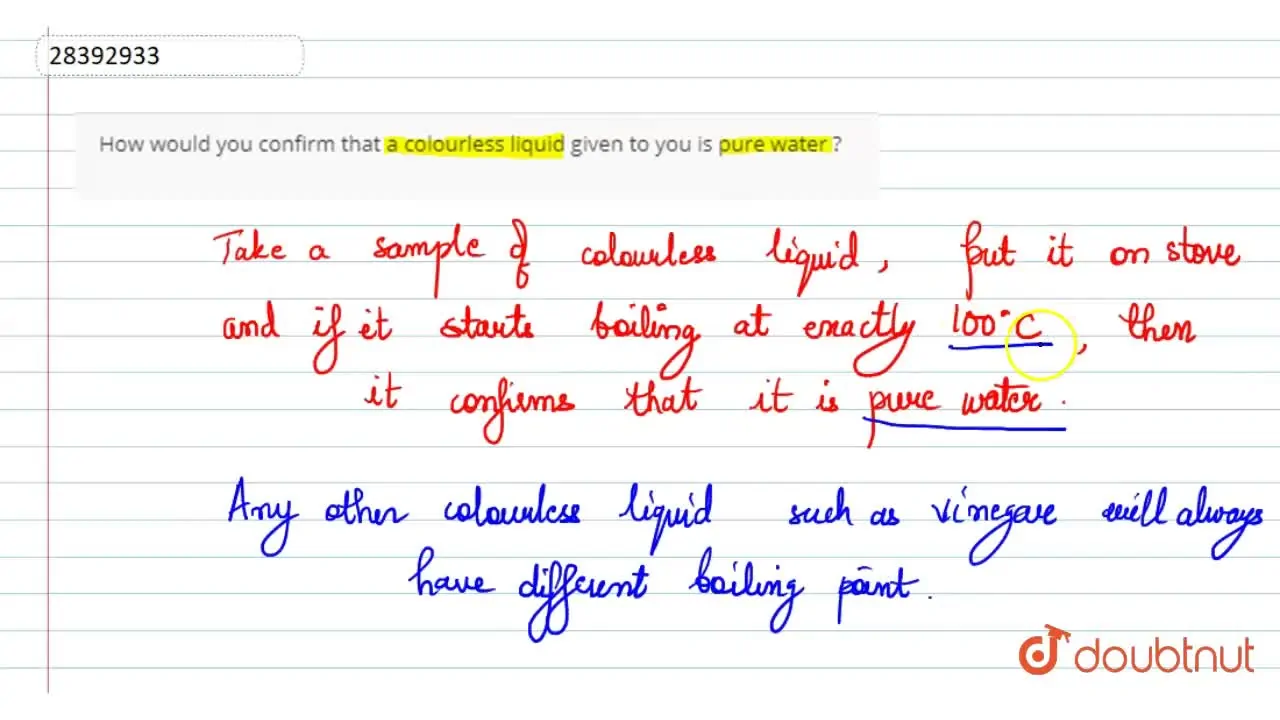 28392933
How would you confirm that a colourless liquid given to you is pure water ?
Take a sample of colourless liquid, put it on stove
and if it starts boiling at exactly 100°C, then
it confirms that it is pure water.
Any other colourless liquid such as vinegar will always
have different boiling point.
doubtnut